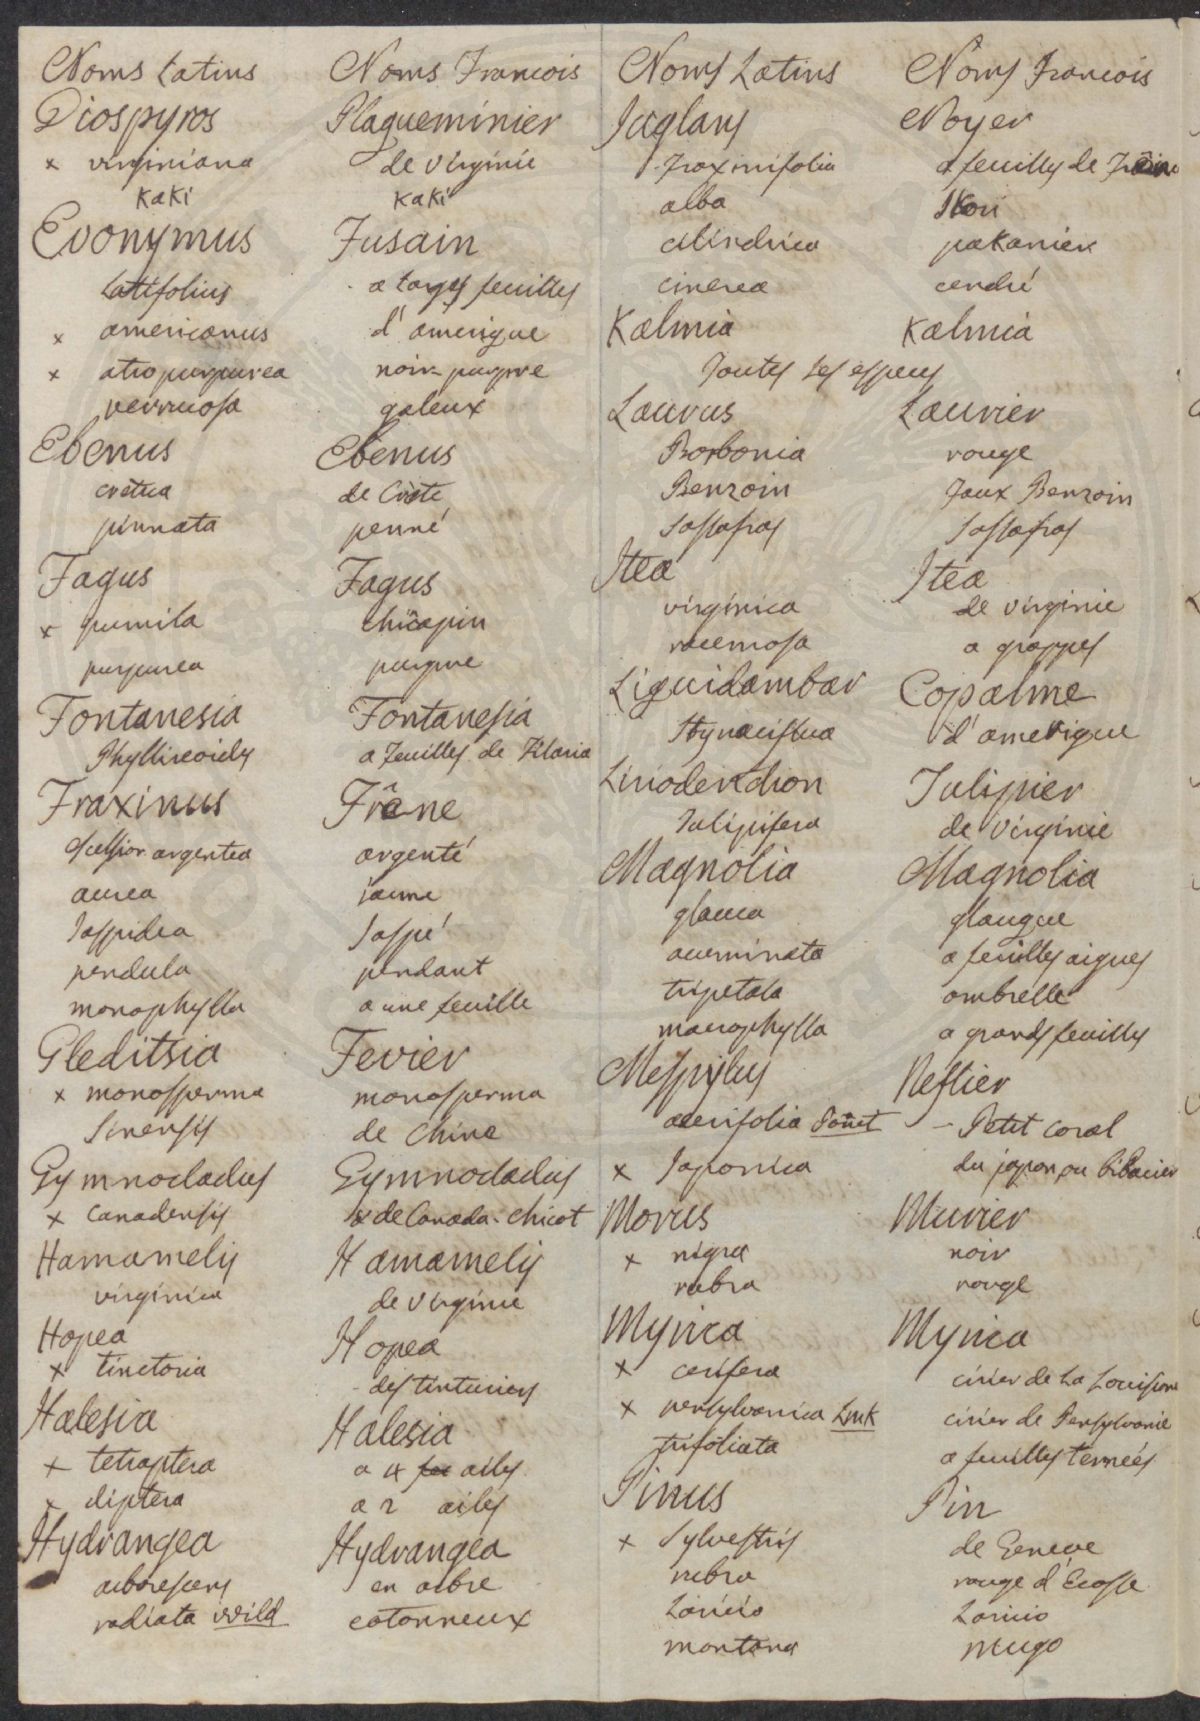 Noms Latins Noms Francois
Diospyros Plaqueminier
x virginiana de virginie
Kaki Kaki
Evonymus Fusain
Latifolius a larges feuilles
x americanus d'amerique
x atropurpurea noir-purpre
verrucosa galeux
Ebenus Ebenus
cretica de Crète
pinnata penné
Fagus Fagus
x pumila chicapin
purpurea purpre
Fontanesia Fontanesia
Phyllireoides a feuilles de Filaria
Fraxinus Frêne
excelsior argentea argenté
aurea jaune
Jaspidea Jaspé
pendula pendant
monophylla a une feuille
Gleditsia Fevier
x monosperma monosperma
Sinensis de Chine
Gymnocladus Gymnocladus
x canadensis x de Canada - chicot
Hamamelis Hamamelis
virginica de virginie
Hopea Hopea
x tinctoria des tinturiers
Halesia Halesia
x tetraptera a 4 ailes
x diptera a 2 ailes
Hydrangea Hydrangea
arborescens en arbre
radiata Wild cotonneux
Noms Latins Noms Francois
Juglans Noyer
Fraxinifolia a feuilles de Frêne
alba Ikori
cilindrica pakanier
cinerea cendré
Kalmia Kalmia
Toutes les especes
Laurus Laurier
Borbonia rouge
Benzoin Faux Benzoin
Sassafras Sassafras
Itea Itea
virginica de virginie
racemosa a grappes
Liquidambar Copalme
Styraciflua d'amerique
Liriodendron Tulipier
Tulipifera de virginie
Magnolia Magnolia
glauca glauque
acuminata a feuilles aigues
tripetala ombrelle
macrophylla a grands feuilles
Mespylus Neflier
acerifolia - Petit coral
x Japonica du japon, ou bibacier
Morus Murier
x nigra noir
rubra rouge
Myrica Myrica
x cerifera cirier de La Louisiane
x pensylvanica Lmk cirier de Pensylvanie
trifoliata a feuilles ternées
Pinus Pin
x Sylvestris de Geneve
rubra rouge d'Ecosse
Laricio Laricio
montana mugo